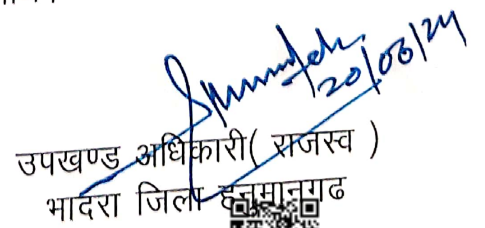 20/06/24
उपखण्ड अधिकारी( राजस्व )
भादरा जिला हनुमानगढ